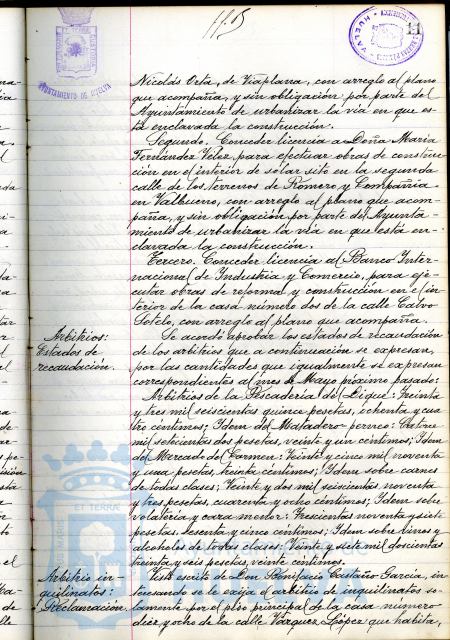 AYUNTAMIENTO DE HUELVA
11
Nicolás Orta, de Viaplana, con arreglo al plano
que acompaña, y sin obligación por parte del
Ayuntamiento de urbanizar la vía en que es-
tá enclavada la construcción.
Segundo. Conceder licencia a Doña María
Fernández Vélez para efectuar obras de construc-
ción en el interior de solar sito en la segunda
calle de los terrenos de Romero y Compañía
en Valbueno, con arreglo al plano que acom-
paña, y sin obligación por parte del Ayunta-
miento de urbanizar la vía en que está en-
clavada la construcción.
Tercero. Conceder licencia al Banco Inter-
nacional de Industria y Comercio, para eje-
cutar obras de reforma y construcción en el in-
terior de la casa número dos de la calle Calvo
Sotelo, con arreglo al plano que acompaña.
Arbitrios:
Estados de
recaudación.
Se acordó aprobar los estados de recaudación
de los arbitrios que a continuación se expresan,
por las cantidades que igualmente se expresan
correspondientes al mes de Mayo próximo pasado:
Arbitrios de la Pescadería del Dique: Treinta
y tres mil seiscientas quince pesetas, ochenta y cua-
tro céntimos; Idem del Matadero-perneo: Catorce
mil setecientas dos pesetas, veinte y un céntimos; Idem
del Mercado del Carmen: Veinte y cinco mil noventa
y una pesetas, treinta céntimos; Idem sobre carnes
de todas clases; Veinte y dos mil seiscientas noventa
y tres pesetas, cuarenta y ocho céntimos; Idem sobre
volatería y caza menor: Trescientas noventa y siete
pesetas, sesenta y cinco céntimos; Idem sobre vinos y
alcoholes de todas clases: Veinte y siete mil doscientas
treinta y seis pesetas, veinte céntimos.
Arbitrio in-
quilinatos:
Reclamación.
Visto escrito de Don Bonifacio Castaño García, in-
teresando se le exija el arbitrio de inquilinatos so-
lamente por el piso principal de la casa número
diez y ocho de la calle Vázquez López que habita,